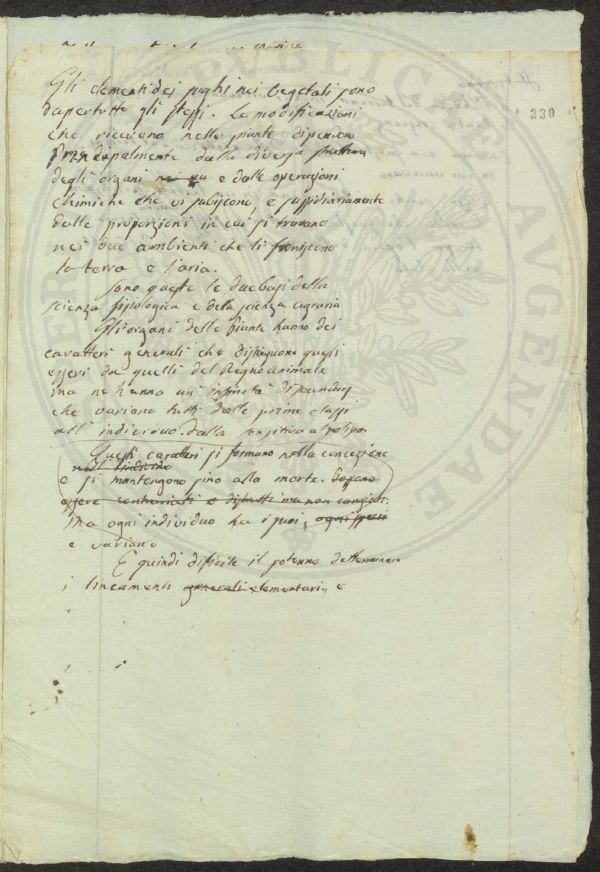 330
Gli elementi dei sughi nei vegetati sono
dapertutto gli stessi. Le modificazioni
che ricevono nelle piante dipendono
principalmente dalla diversa struttura
degli organi e dalle operazioni
chimiche che vi subiscono, e sussidiariamente
dalle proporzioni in cui si trovano
nei due ambienti che li forniscono
la terra e l'aria.
Sono queste le due basi della
scienza fisiologica e della scienza agraria
Gli organi delle piante hanno dei
caratteri generali che distinguono quegli
esseri da quelli del Regno animale
ma ne hanno un' infinità di secondarj
che variano tutti dalle prime classi
all' individuo. dalla sensitiva al polipo.
Questi caratteri si formano nella concezione
nell' individuo
e si mantengono sino alla morte. Possono
essere contrariati e distrutti ma non cangiati.
Ma ogni individuo ha i suoi, ogni specie
e variano
E quindi difficile il poterne determinare
i lineamenti generali elementari, e